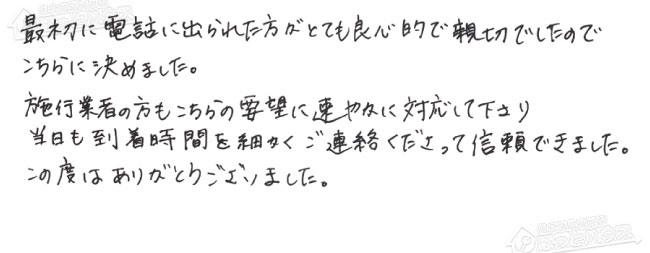 最初に電話に出られた方がとても良心的で親切でしたので
こちらに決めました。
施行業者の方もこちらの要望に速やかに対応して下さり
当日も到着時間を細かくご連絡くださって信頼できました。
この度はありがとうございました。